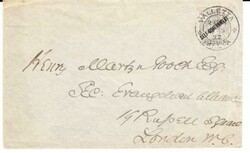 VALLETTA
Henry Martyn Gooch Esq
Sec. Evangelical Alliance
Russell Square
London W.C.